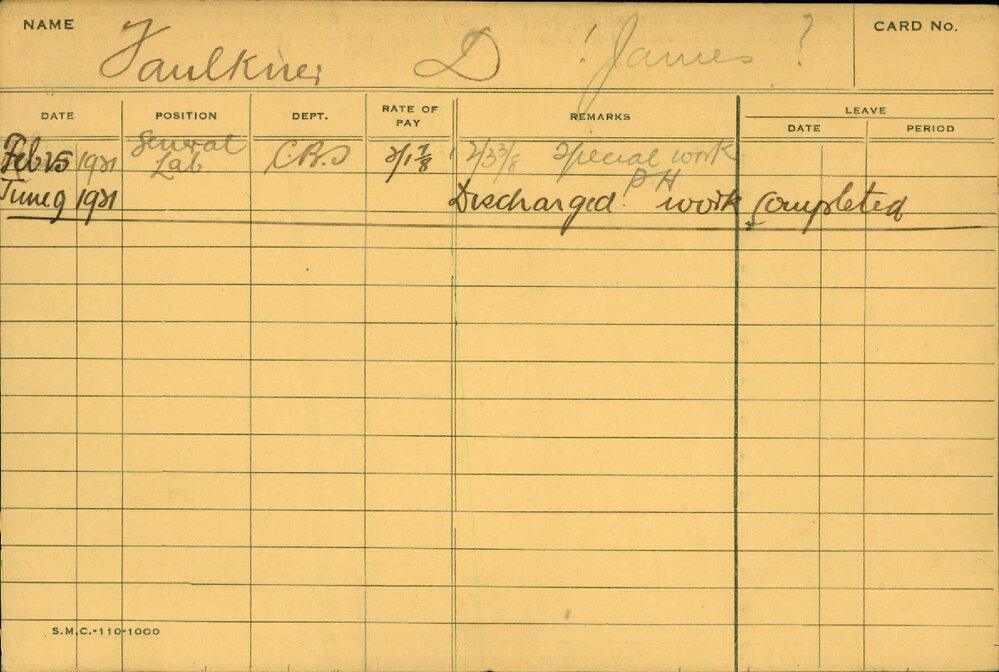 NAME
Faulkner D ! James ?
CARD No.
DATE POSITION DEPT. RATE OF PAY REMARKS LEAVE
DATE PERIOD
Feb 25 1921 General Lab C.R.S 2/1 7/8 2/3 3/8 Special work
P H
June 9 1921 Discharged work completed
S.M.C.-110-1000